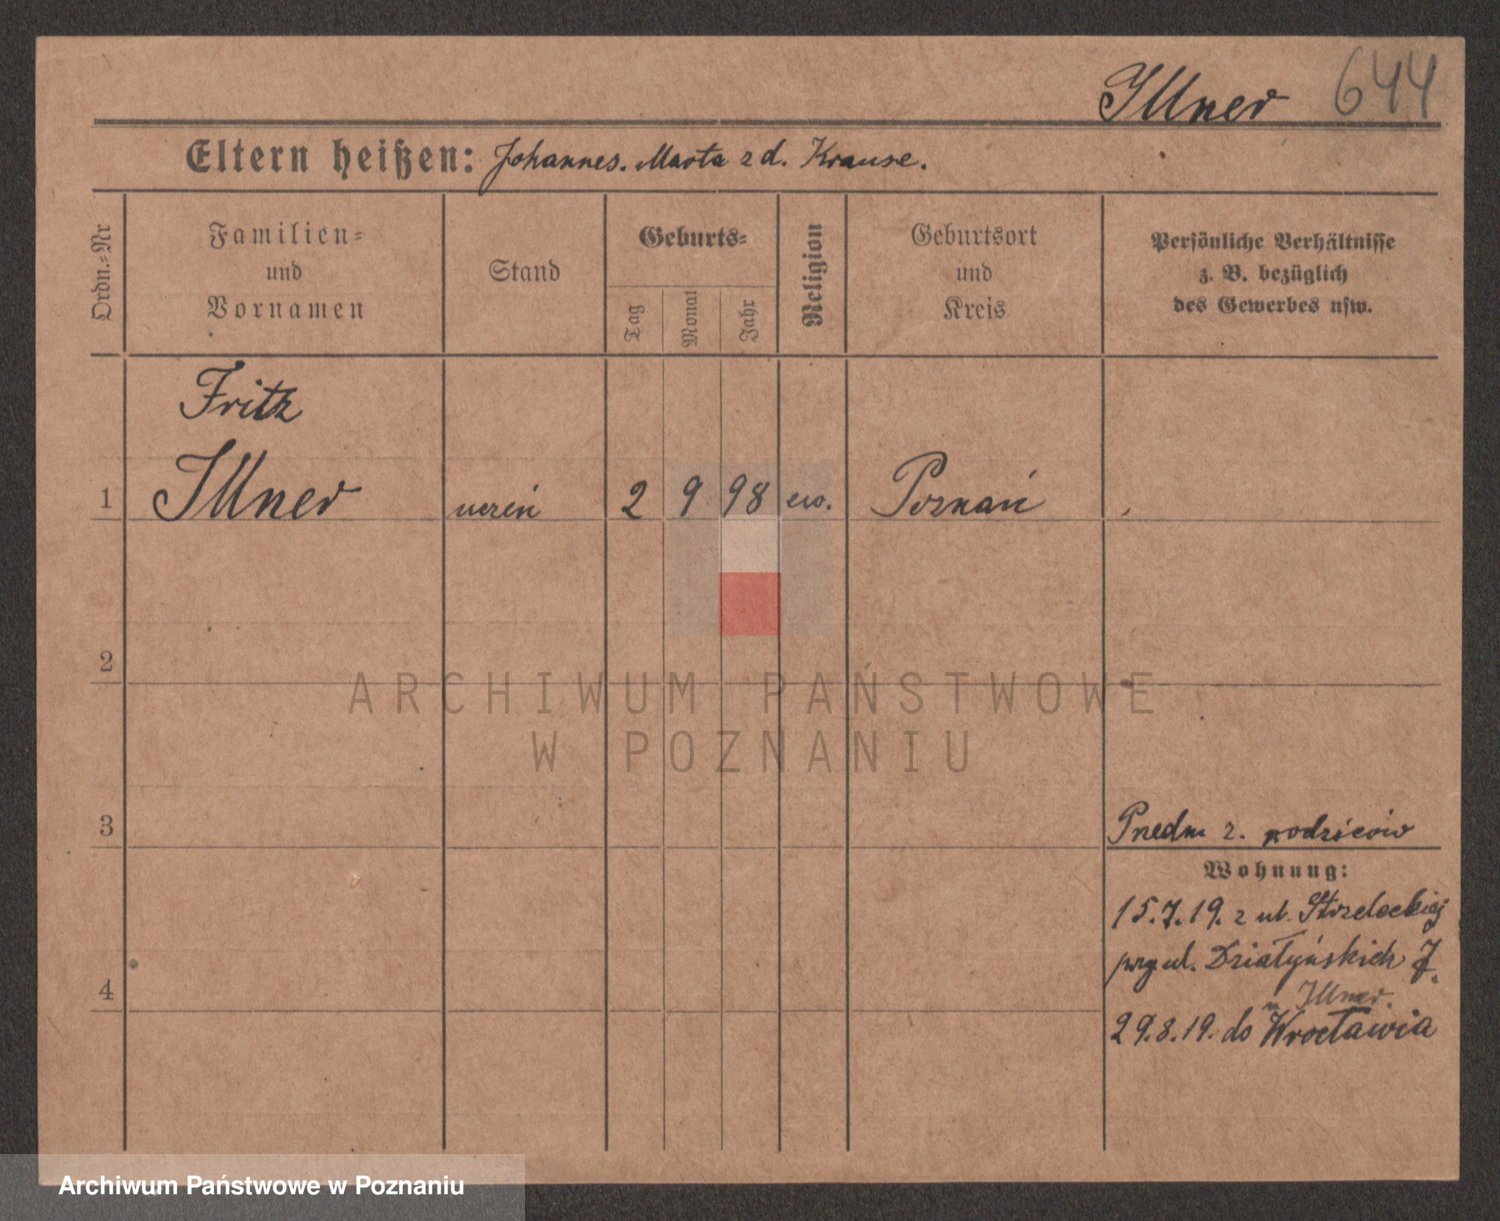 Illner 644
Eltern heißen: Johannes. Marta z d. Krause.
Ordn.-Nr
Familien- und Vornamen
Stand
Geburts-
Tag
Monat
Jahr
Religion
Geburtsort und Kreis
Persönliche Verhältnisse
z. B. bezüglich
des Gewerbes usw.
Fritz
1 Illner uczeń 2 9 98 ew. Poznań
2
ARCHIWUM PAŃSTWOWE
W POZNANIU
3
z. rodziców
Wohnung:
15.7.19. z ul. Strzeleckiej
ul. Działyńskich 7.
4
u Illner.
29.8.19. do Wrocławia
Archiwum Państwowe w Poznaniu